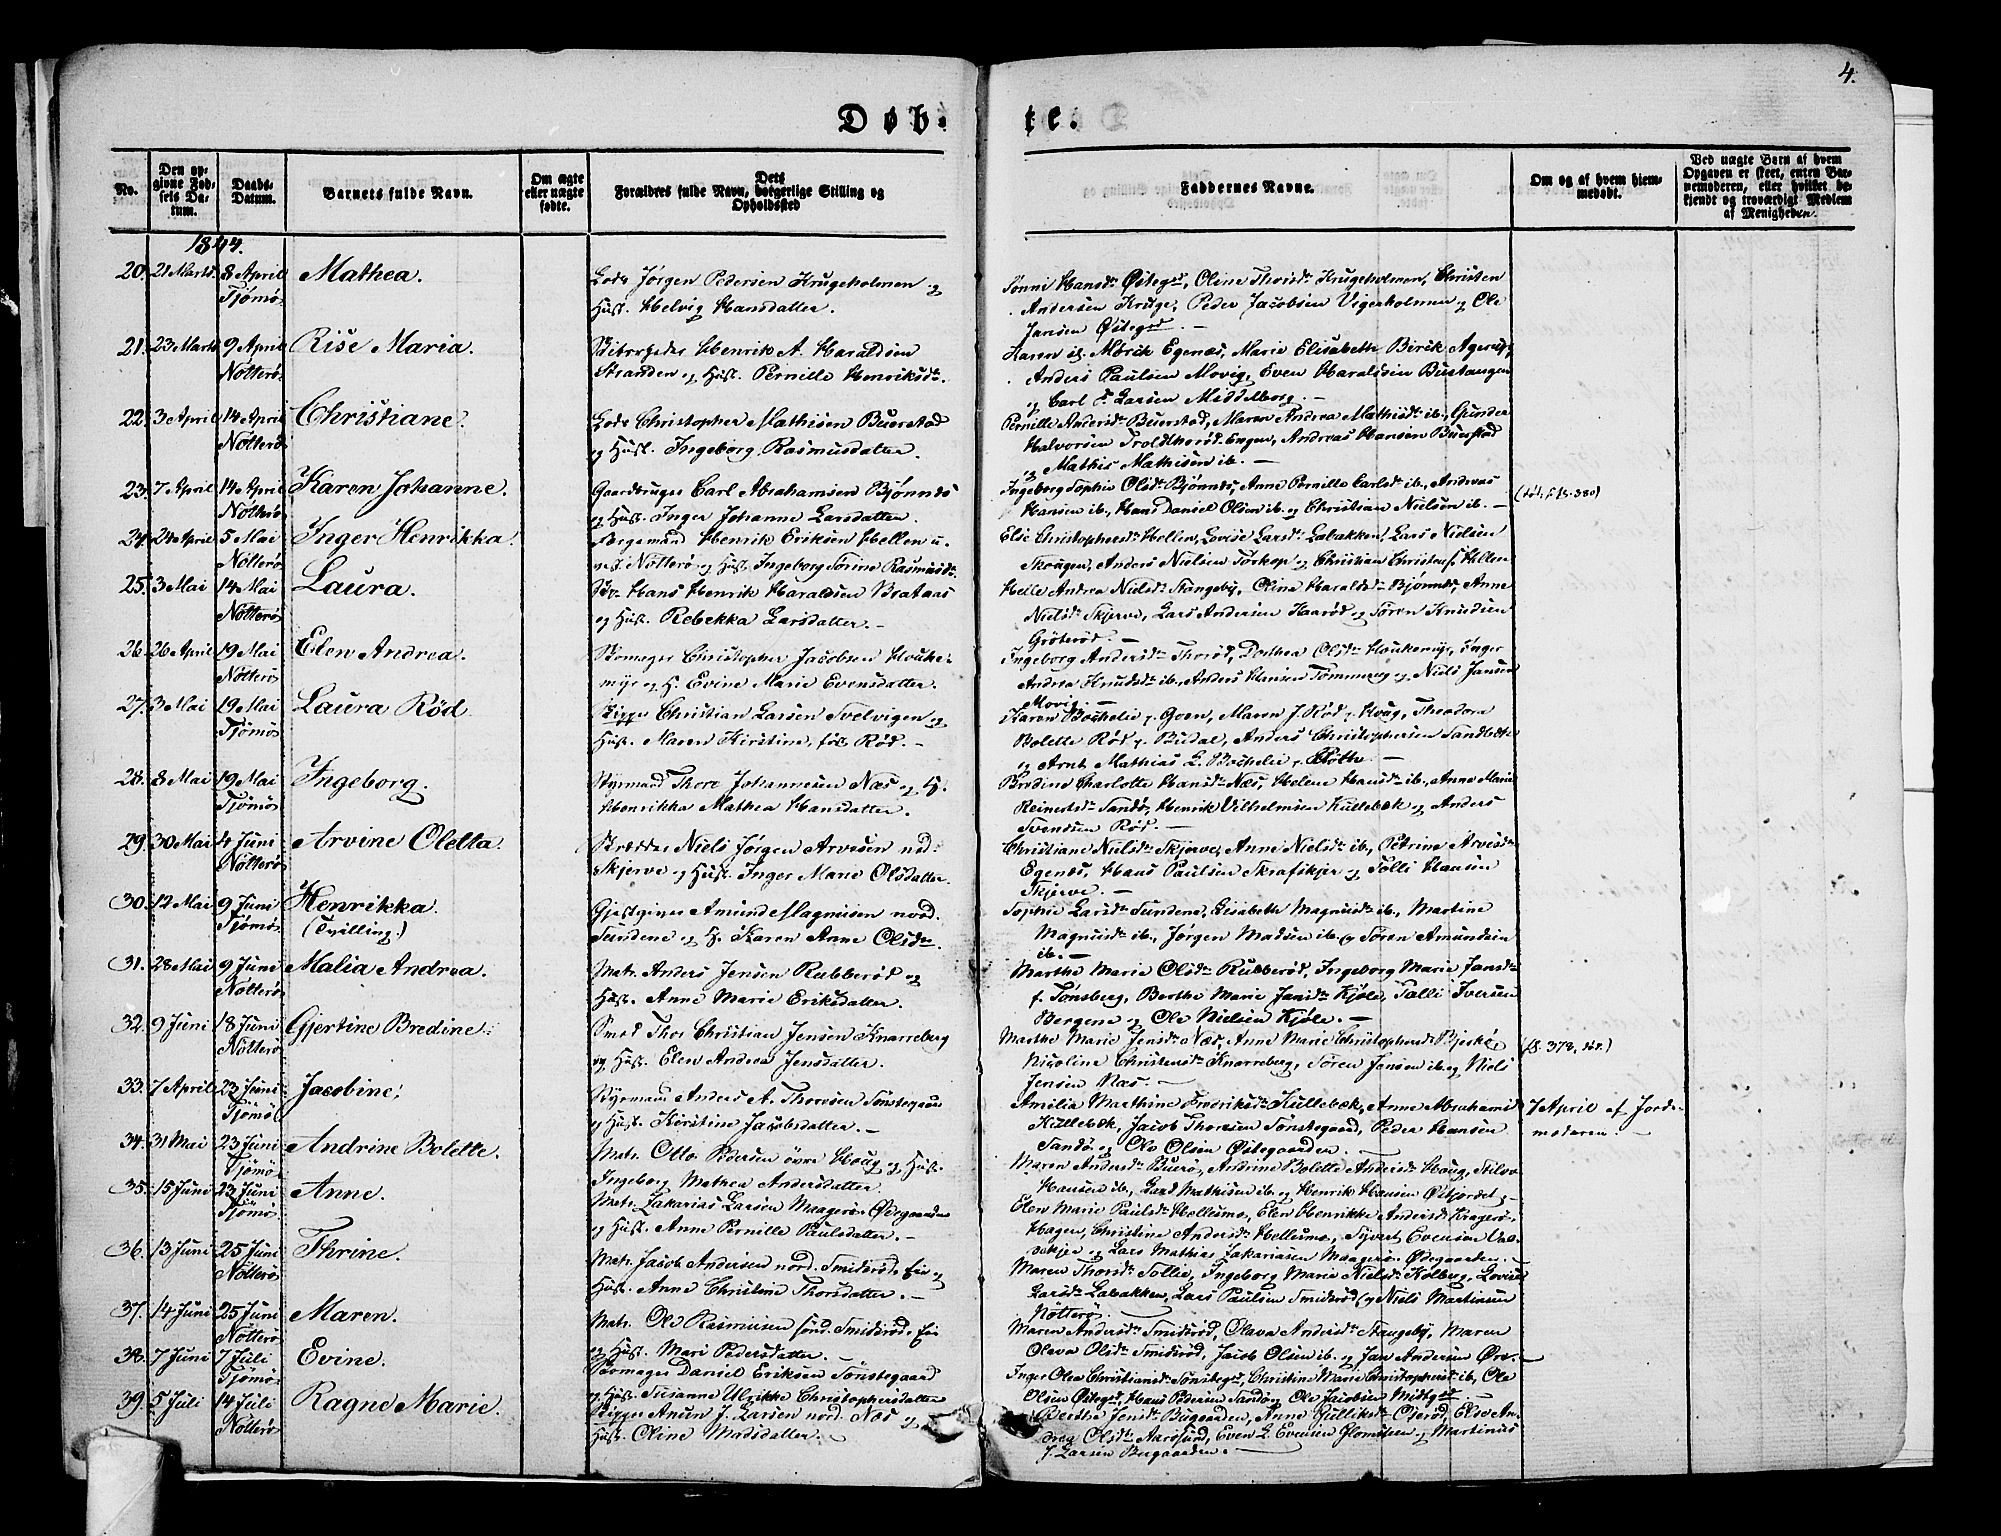 4.
Døb-
te.
No.
Den op-
givne Fød-
sels Da-
tum.
Daabs-
Datum.
Barnets fulde Navn.
Om ægte
eller uægte
fødte.
Dets
Forældres fulde Navn, borgerlige Stilling og
Opholdssted
Faddernes Navne.
Om og af hvem hjem-
medøbt.
Ved uægte Børn af hvem
Opgaven er skeet, enten Bar-
nemoderen, eller hvilket be-
kjendt og troværdigt Medlem
af Menigheden.
1844.
20. 21 Marts. 8 April Mathea. Lods Jørgen Pedersen Krugeholmen og
Tjømø Hust. Helvig Hansdatter.
Hansd. Østegd, Oline Thorsd. Krugeholmen, Christen
Andersen Kruge, Peder Jacobsen Vigerholmen og Ole
Jansen Østegrd. —
21. 23 Marts 9 April Rise Maria. Henrik A. Haraldsen
Nøtterø Stranden og Hust. Pernille Henriksdr.
Egenæs, Marie Elisabeth
Anders Paulsen Movig, Even Haraldsen Bustangen
og Carl F. Larsen Middelborg. —
22. 3 April 14 April Christiane. Lods Christopher Mathisen Buerstad
Nøtterø og Hust. Ingeborg Rasmusdatter.
Pernille Andersdr. Buerstad, Maren Andrea Mathisdr. ib., Gunder
Halvorsen Engen, Andreas Hansen Buerstad
og Mathis Mathisen ib. —
23. 7 April 14 April Karen Johanne. Gaardbruger Carl Abrahamsen Bjønnes
Nøtterø og Hust. Inger Johanne Larsdatter.
Ingeborg Sophie Olsdr. Bjønnes, Anne Pernille Carlsdr. ib., Andreas
Hansen ib., Hans Daniel Olsen ib. og Christian Nielsen ib. —
24. 24 April 5 Mai Inger Henrikka. Henrik Eriksen Hellen
Nøtterø Nøtterø og Hust. Ingeborg Torine Rasmusdr.
Else Christophersdr. Hellen, Lovise Larsdr. Labakken, Lars Nielsen
Skougen, Anders Nielsen Torkop og Christian Hellen
25. 3 Mai 14 Mai Laura. Hans Henrik Haraldsen Brataas
Nøtterø og Hust. Rebekka Larsdatter. —
Helle Andrea Nielsdr. Stangeby, Oline Haraldsdr. Bjønnes, Anne
Nielsdr. Skjerve, Lars Andersen Kaarød og Søren Knudsen
Grøterød. —
26. 26 April 19 Mai Elen Andrea. Skomager Christopher Jacobsen Houke-
Nøtterø myr og H. Evine Marie Evensdatter.
Ingeborg Andersdr. Thorød, Dorthea Olsdr. Houkemyr, Inger
Andrea Knudsdr. ib., Anders Hansen og Niels Jansen
Movig. —
27. 3 Mai 19 Mai Laura Rød Skipper Christian Larsen Svelvigen og
Tjømø Hust. Maren Kirstine, fød Rød. —
Karen Goen, Maren J. Rød Houg, Theodora
Bolette Rød Budal, Anders Christophersen
og Arnt Mathias L.
28. 8 Mai 19 Mai Ingeborg. Styrmand Thore Johannesen Næs og H.
Tjømø Henrikka Mathea Hansdatter.
Bredine Charlotte Hansdr. Næs, Helene Hansdr. ib., Anne Marie
Sandø, Henrik Vilhelmsen Kullebæk og Anders
Svendsen Rød. —
29. 30 Mai 4 Juni Arvine Oletta. Skrædder Niels Jørgen Arvesen ned.
Nøtterø Skjerve og Hust. Inger Marie Olsdatter.
Christiane Nielsdr. Skjerve, Anne Nielsdr. ib., Petrine Arvesdr.
Egenæs, Hans Paulsen og Tolli Hansen
Skjerve. —
30. 12 Mai 9 Juni Henrikka. Gjestgiver Amund Magnusen nord.
Tjømø (Tvilling.) Sundene og H. Karen Anne Olsdr.
Sophie Larsdr. Sundene, Lisabeth Magnusdr. ib., Martine
Magnusdr. ib., Jørgen Madsen ib. og Søren Amundsen
ib. —
31. 28 Mai 9 Juni Malia Andrea. Matr. Anders Jensen Rubberød og
Nøtterø Hust. Anne Marie Eriksdatter.
Marthe Marie Olsdr. Rubberød, Ingeborg Marie Jansdr.
f. Tønsberg, Berthe Marie Jansdr. Kjøle, Tolli Iversen
Bergene og Ole Nielsen Kjøle. —
32. 9 Juni 18 Juni Gjertine Bredine. Smed Thor Christian Jensen Knarreberg
Nøtterø og Hust. Elen Andrea Jensdatter.
Marthe Marie Jensdr. Næs, Anne Marie Christophersdr.
Nicoline Christensdr. Knarreberg, Søren Jensen ib. og Niels
Jensen Næs. —
33. 7 April 23 Juni Jacobine. Styrmand Anders A. Thoresen Sønstegaard
Tjømø og Hust. Kirstine Jacobsdatter. —
Amilia Marthine Fredriksdr. Kullebæk, Anne Abrahamsd.
Kullebæk, Jacob Thoresen Sønstegaard, Peder Hansen
Sandø og Ole Olsen Østegaarden. —
7 April af Jorde-
moderen. —
34. 31 Mai 23 Juni Andrine Bolette. Matr. Otto Pedersen øvre Houg og Hust.
Tjømø Ingeborg Mathea Andersdatter.
Maren Andersdr. Buerø, Andrine Bolette Andersdr. Houg,
Hansen ib., Lars Mathisen ib. og Henrik Hansen
35. 15 Juni 23 Juni Anne. Matr. Zakarias Larsen Maagerø Ødegaarden
Tjømø og Hust. Anne Pernille Paulsdatter. —
Elen Marie Paulsdr. Hellesmo, Elen Henrikke Andersdr. Kragerø,
Hagen, Christine Andersdr. Hellesmo, Syvert Evensen
og Lars Mathias Zakariasen Maagerø Ødegaarden.
36. 13 Juni 25 Juni Thrine. Matr. Jacob Andersen nord. Smidsrød, og
Nøtterø Hust. Anne Christine Thorsdatter. —
Maren Thorsdr. Tollie, Ingeborg Marie Nielsdr. Kolberg, Lovise
Larsdr. Labakken, Lars Paulsen Smidsrød og Niels Martinsen
Nøtterø. —
37. 14 Juni 25 Juni Maren. Matr. Ole Rasmusen sønd. Smidsrød,
Nøtterø og Hust. Mari Pedersdatter. —
Maren Andersdr. Smidsrød, Olava Andersdr. Stangeby, Maren
Olava Olsdr. Smidsrød, Jacob Olsen ib. og Jan Andersen
38. 7 Juni 7 Juli Evine. Skomager Daniel Eriksen Sønstegaard
Tjømø og Hust. Susanne Ulrikke Christophersdatter
Inger Olea Christiansdr. Sønstegrd, Christine Marie Christophersdr. ib., Ole
Olsen Østegrd, Hans Pedersen Sandø og Ole Jacobsen Midtgrd. —
39. 5 Juli 14 Juli Ragne Marie. Skipper Anun J. Larsen nord. Næs og
Nøtterø Hust. Oline Madsdatter. —
Berthe Jensdr. Bugaarden, Anne Gulliksdr. Oserød, Else An-
drea Olsdr. Aarøsund, Even L. Evensen og Martinus
J. Larsen Bugaarden. —